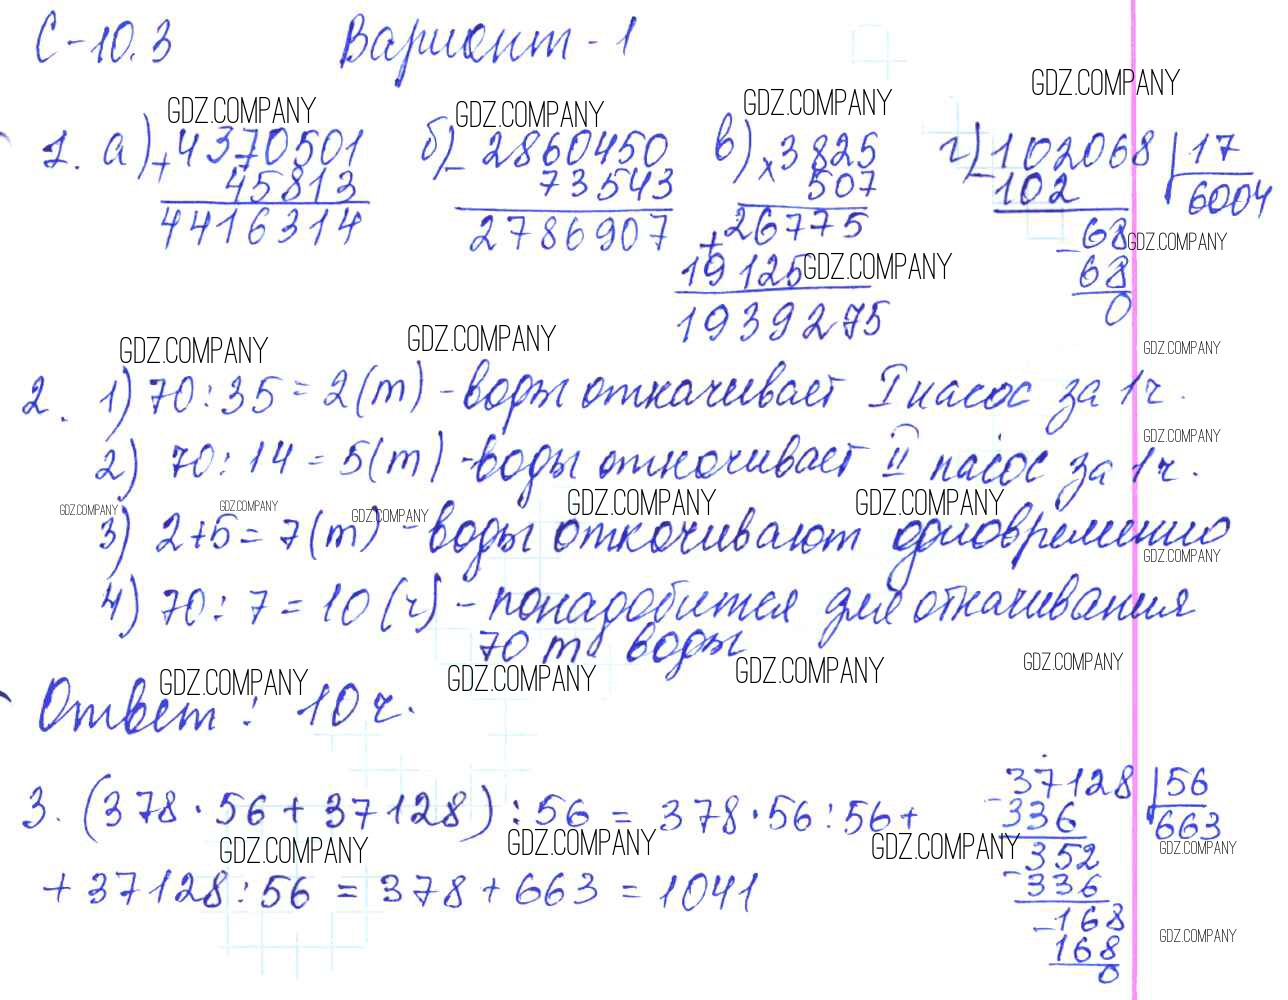 С-10.3 Вариант-1
GDZ.COMPANY GDZ.COMPANY GDZ.COMPANY GDZ.COMPANY
1. а) + 4370501 б) - 2860450 в) × 3825 г) - 102068 | 17
45813 73543 507 102 6004
4416314 2786907 + 26775 - 68 GDZ.COMPANY
19125 GDZ.COMPANY 68
1939275 0
GDZ.COMPANY GDZ.COMPANY GDZ.COMPANY
2. 1) 70:35=2(т)-воды откачивает I насос за 1ч.
2) 70:14=5(т)-воды откачивает II насос за 1ч. GDZ.COMPANY
GDZ.COMPANY GDZ.COMPANY GDZ.COMPANY GDZ.COMPANY GDZ.COMPANY
3) 2+5=7(т)-воды откачивают одновременно
GDZ.COMPANY
4) 70:7=10(ч)-понадобится для откачивания
70 т воды
GDZ.COMPANY GDZ.COMPANY GDZ.COMPANY GDZ.COMPANY
Ответ: 10 ч.
3. (378·56+37128):56=378·56:56+ - 37128 | 56
GDZ.COMPANY GDZ.COMPANY GDZ.COMPANY 336 663
+37128:56=378+663=1041 - 352 GDZ.COMPANY
336
- 168
168 GDZ.COMPANY
0